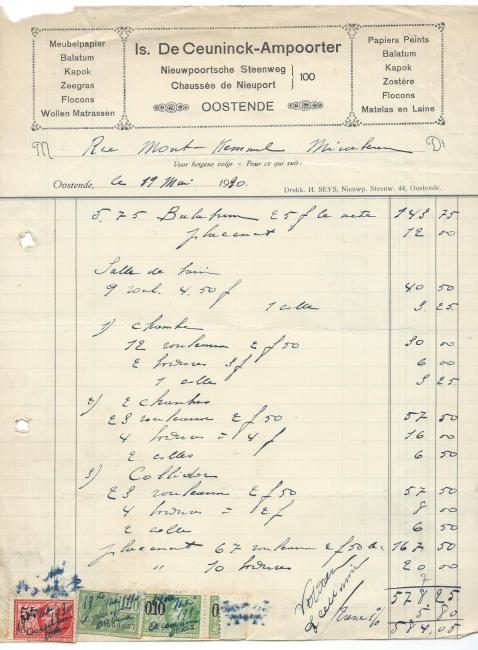 Meubelpapier
Balatum
Kapok
Zeegras
Flocons
Wollen Matrassen
Is. De Ceuninck-Ampoorter
Nieuwpoortsche Steenweg
Chaussée de Nieuport
100
OOSTENDE
Papiers Peints
Balatum
Kapok
Zostère
Flocons
Matelas en Laine
M Rue Mont Kemmel Dt
Voor hetgene volgt - Pour ce qui suit:
Oostende, le 19 Mai 19
Drukk. H. SEYS, Nieuwp. Steenw. 44, Oostende.
5.75 Balatum 25 f le metre 143 75
placement 12 00
Salle de bain
9 roul. 4.50 f 40 50
1 colle 3 25
1) chambre
12 rouleaux 2 f 50 30 00
2 bordures 3 f 6 00
1 colle 3 25
2) 2 chambres
23 rouleaux 2 f 50 57 50
4 bordures = 4 f 16 00
2 colles 6 50
3) Collidor
23 rouleaux 2 f 50 57 50
4 bordures = 2 f 8 00
2 colle 6 50
placement 67 rouleaux 2 f 50 167 50
" 10 bordures 20 00
578 25
5 80
584.05
0.10